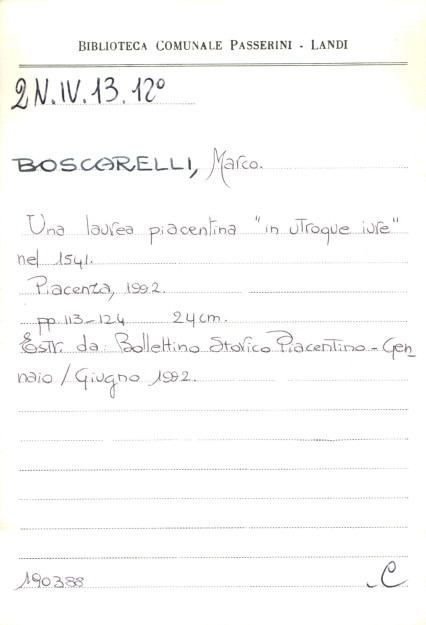 BIBLIOTECA COMUNALE PASSERINI - LANDI
2N.IV.13.12°
BOSCARELLI, Marco.
Una laurea piacentina "in utroque iure"
nel 1541.
Piacenza, 1992.
pp. 113-124 24 cm.
Estr. da: Bollettino Storico Piacentino - Gen
naio / Giugno 1992.
190388
C